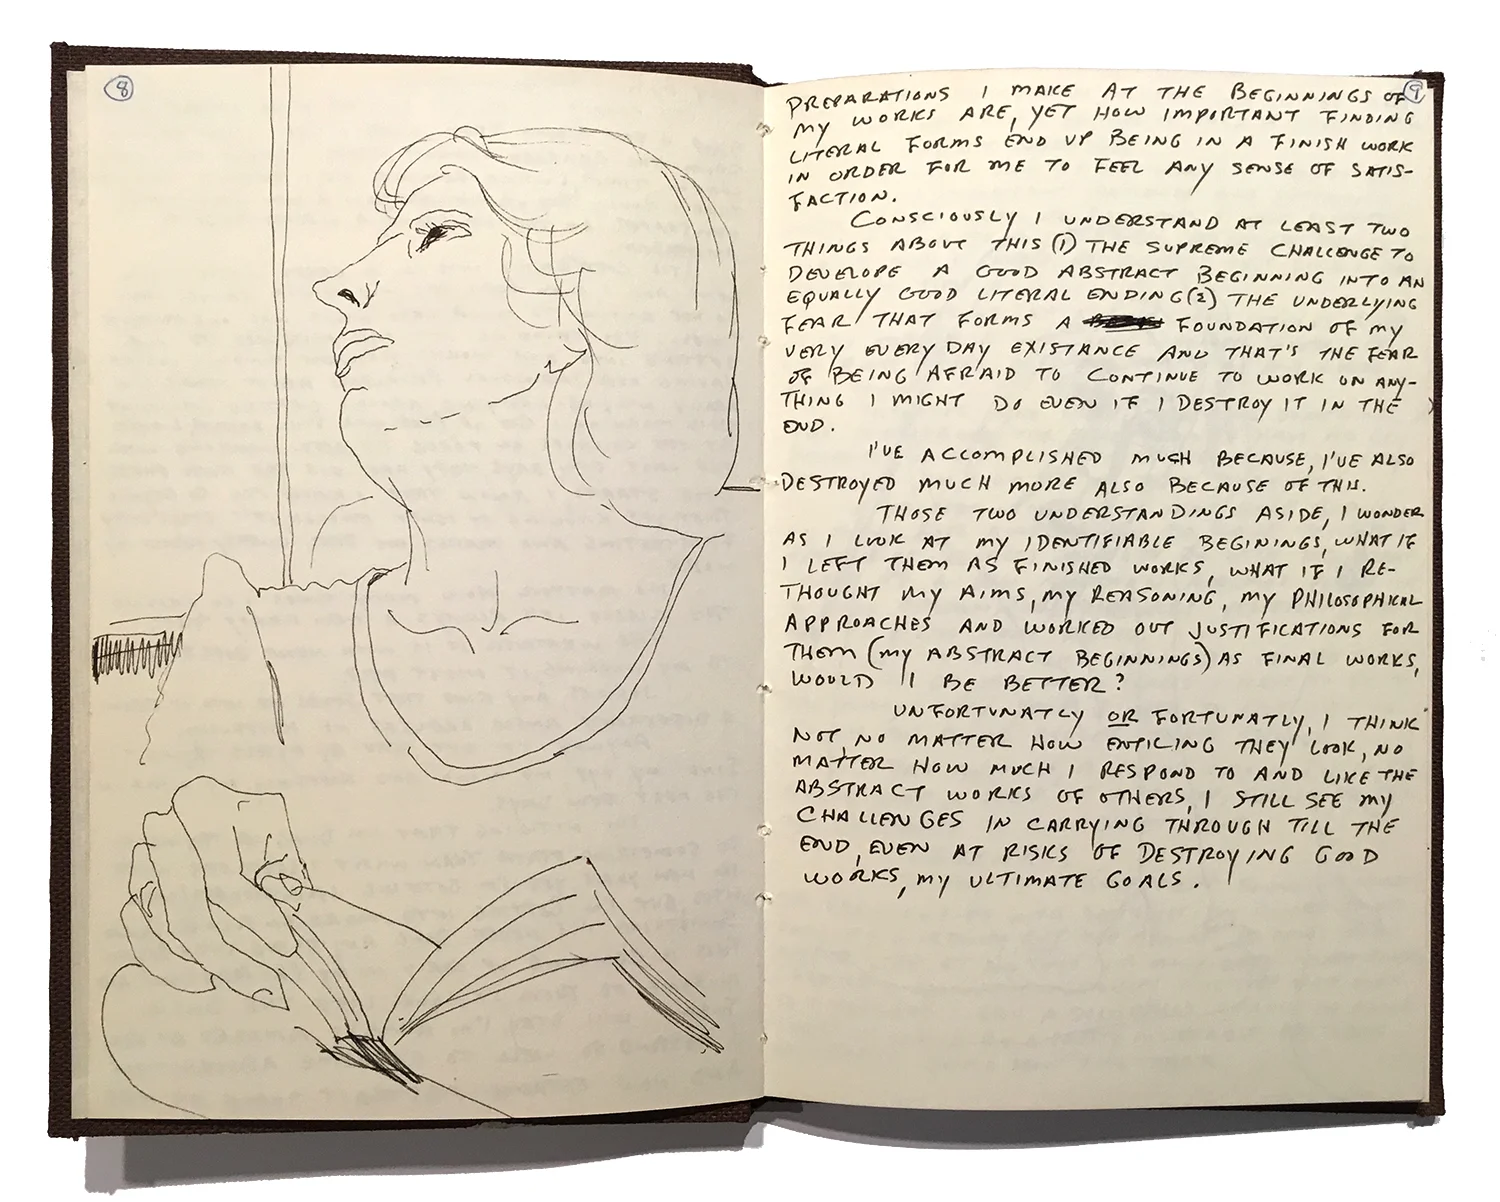 8
9
PREPARATIONS I MAKE AT THE BEGINNINGS OF
MY WORKS ARE, YET HOW IMPORTANT FINDING
LITERAL FORMS END UP BEING IN A FINISH WORK
IN ORDER FOR ME TO FEEL ANY SENSE OF SATIS-
FACTION.
CONSCIOUSLY I UNDERSTAND AT LEAST TWO
THINGS ABOUT THIS (1) THE SUPREME CHALLENGE TO
DEVELOPE A GOOD ABSTRACT BEGINNING INTO AN
EQUALLY GOOD LITERAL ENDING (2) THE UNDERLYING
FEAR THAT FORMS A FOUNDATION OF MY
VERY EVERY DAY EXISTANCE AND THAT'S THE FEAR
OF BEING AFRAID TO CONTINUE TO WORK ON ANY-
THING I MIGHT DO EVEN IF I DESTROY IT IN THE
END.
I'VE ACCOMPLISHED MUCH BECAUSE, I'VE ALSO
DESTROYED MUCH MORE ALSO BECAUSE OF THIS.
THOSE TWO UNDERSTANDINGS ASIDE, I WONDER
AS I LOOK AT MY IDENTIFIABLE BEGININGS, WHAT IF
I LEFT THEM AS FINISHED WORKS, WHAT IF I RE-
THOUGHT MY AIMS, MY REASONING, MY PHILOSOPHICAL
APPROACHES AND WORKED OUT JUSTIFICATIONS FOR
THEM (MY ABSTRACT BEGINNINGS) AS FINAL WORKS,
WOULD I BE BETTER?
UNFORTUNATLY OR FORTUNATLY, I THINK
NOT, NO MATTER HOW ENTICING THEY LOOK, NO
MATTER HOW MUCH I RESPOND TO AND LIKE THE
ABSTRACT WORKS OF OTHERS, I STILL SEE MY
CHALLENGES IN CARRYING THROUGH TILL THE
END, EVEN AT RISKS OF DESTROYING GOOD
WORKS, MY ULTIMATE GOALS.